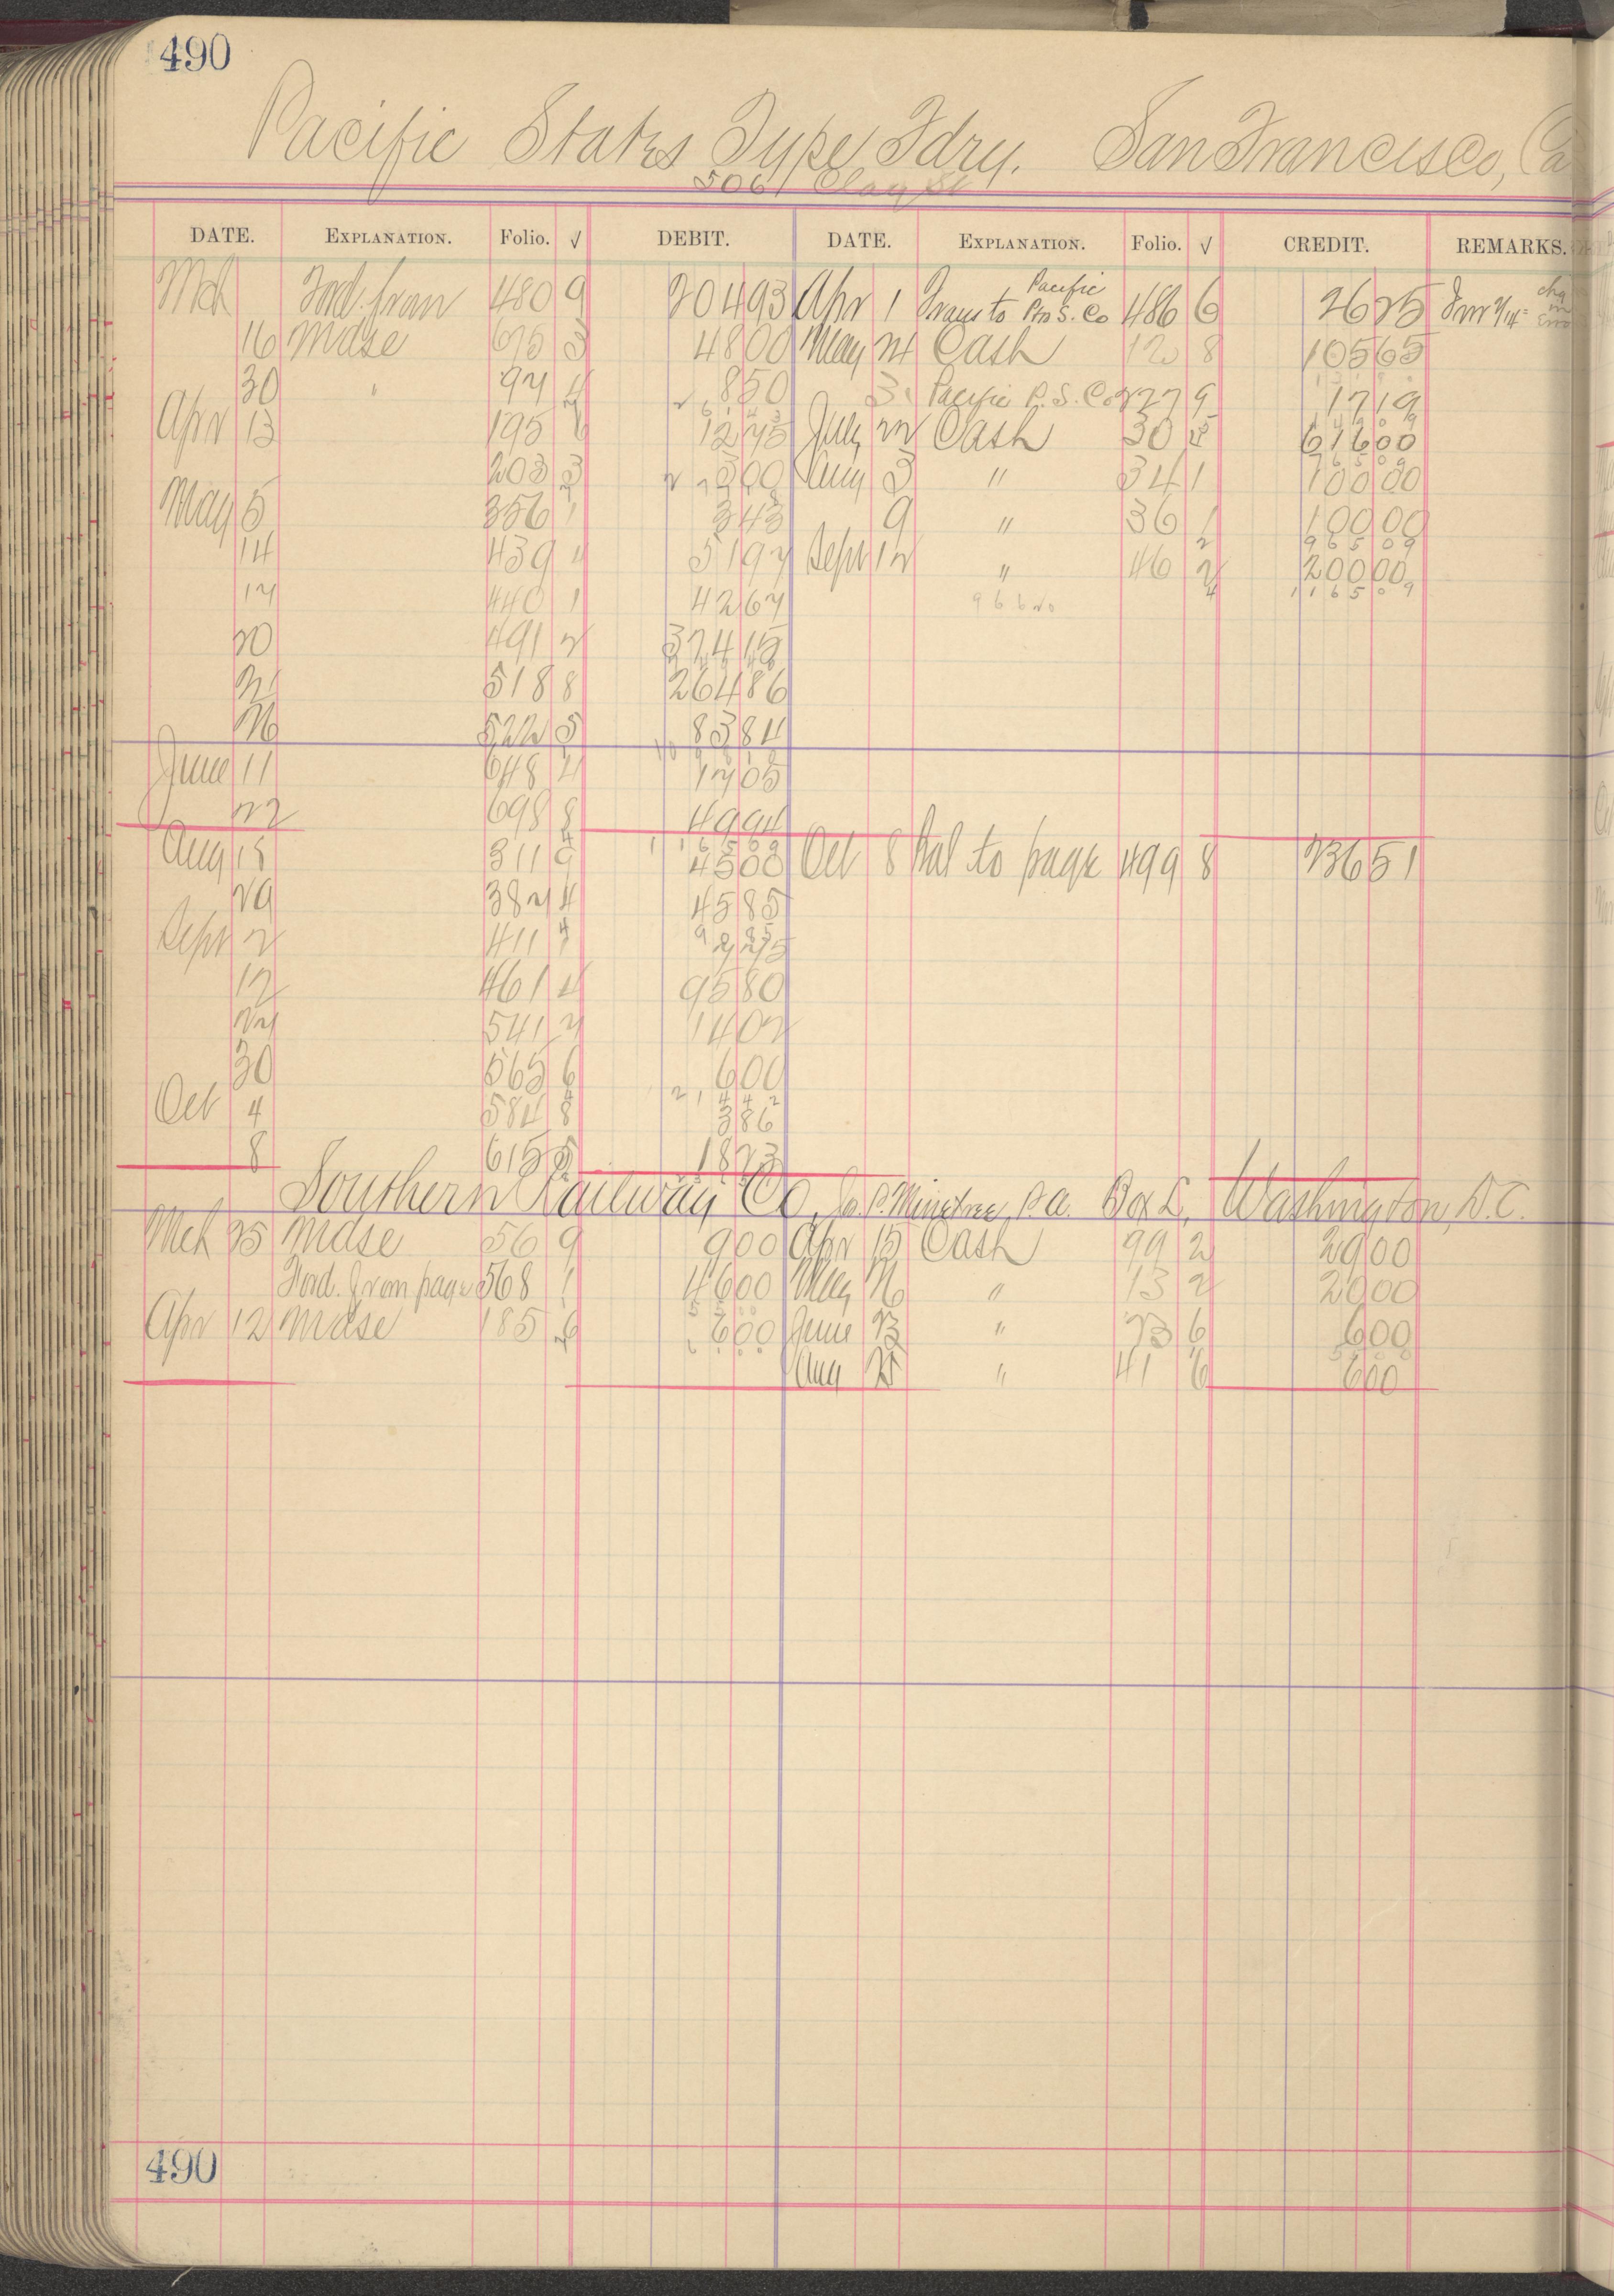 490
Pacific States Type Fdry. San Francisco, Ca
506 Clay St
DATE. EXPLANATION. Folio. √ DEBIT. DATE. EXPLANATION. Folio. √ CREDIT. REMARKS.
Mch Ford. from 480 9 204 93 Apr 1 Trans to Pacific Ptrs S. Co 486 6 26 25
16 Mdse 675 3 48 00 May 24 Cash 12 8 105 65
30 " 94 4 8 50 31 Pacific P. S. Co 277 9 17 19
Apr 13 195 6 12 75 July 22 Cash 30 5 616 00
203 3 3 00 Aug 3 " 34 1 100 00
May 5 356 1 3 43 9 " 36 1 100 00
14 439 4 51 97 Sept 12 " 46 2 200 00
17 440 1 42 67
20 491 2 374 15
21 518 8 264 86
26 522 5 83 84
June 11 648 4 17 05
22 698 8 49 94
Aug 15 311 9 45 00 Oct 8 Bal to page 499 8 236 51
29 387 4 45 85
Sept 2 411 7 7 25
12 461 4 95 80
27 541 7 14 02
30 565 6 6 00
Oct 4 584 8 3 86
8 615 5 18 73
Southern Railway Co, P. A. Box L, Washington, D.C.
Mch 25 Mdse 56 9 9 00 Apr 15 Cash 99 2 29 00
Ford. from page 568 1 46 00 May 26 " 13 2 20 00
Apr 12 Mdse 185 6 6 00 June 23 " 23 6 6 00
Aug 25 " 41 6 6 00
490